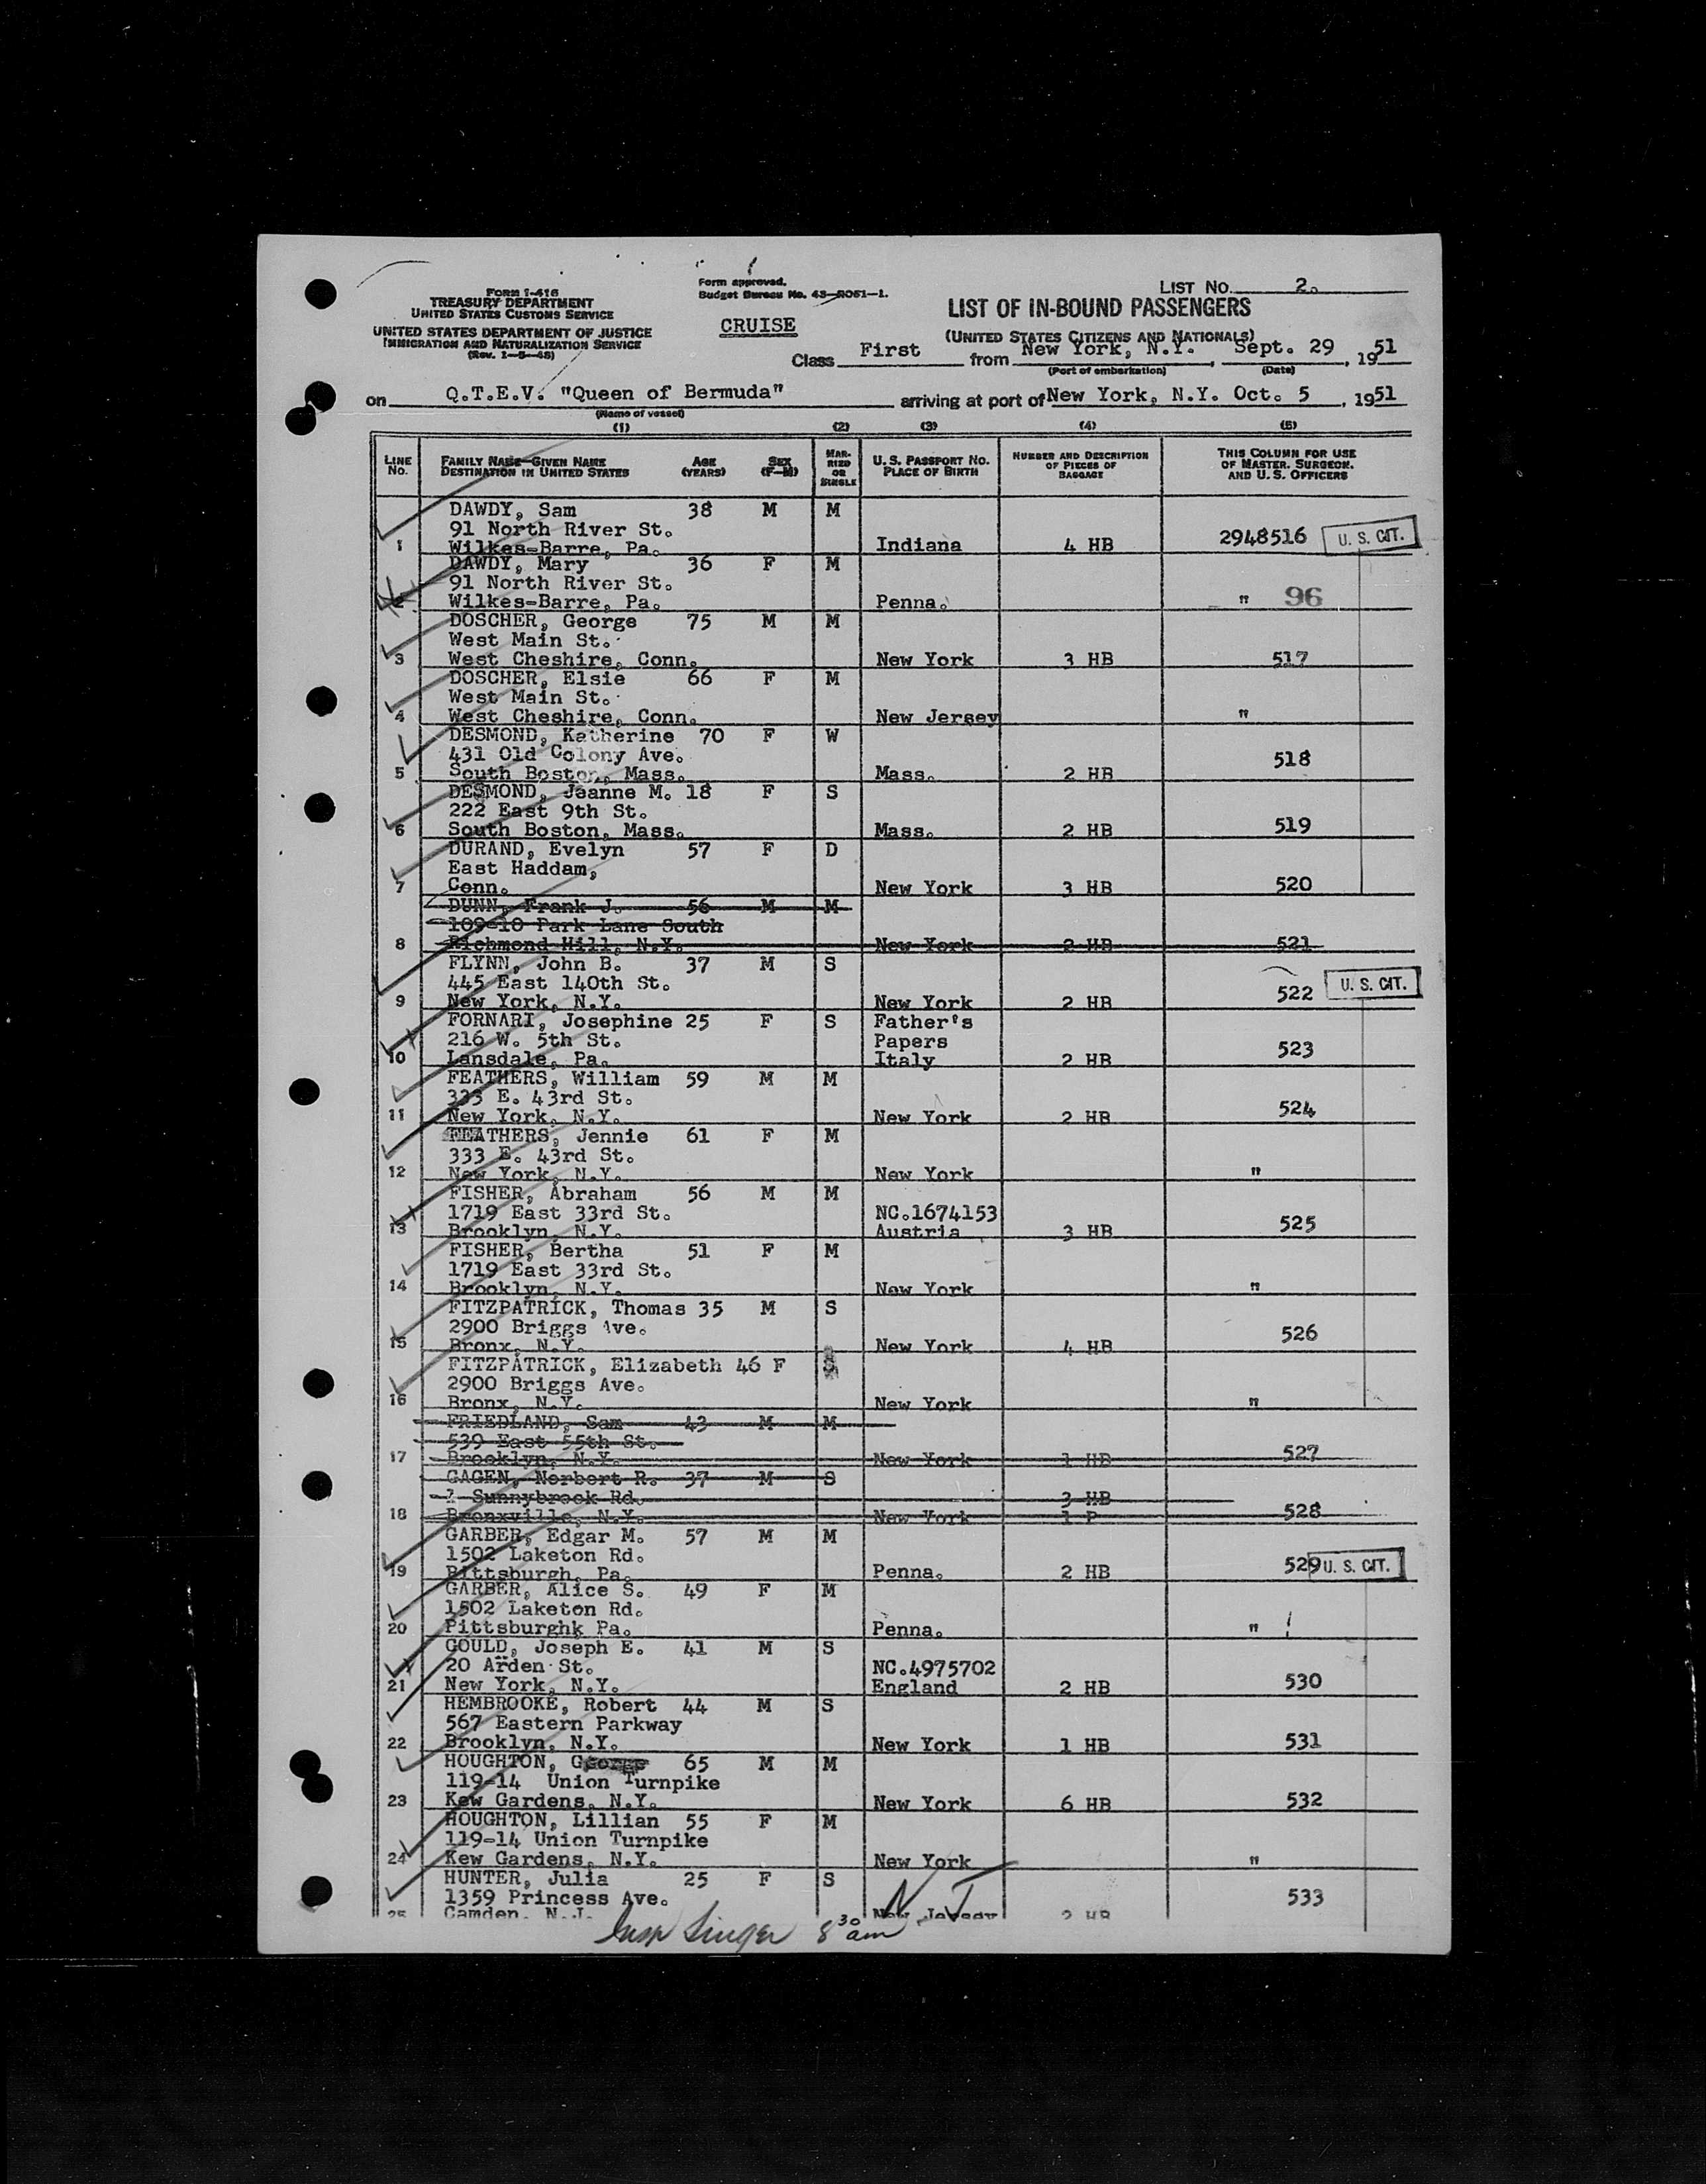 Form I-416
TREASURY DEPARTMENT
UNITED STATES CUSTOMS SERVICE
UNITED STATES DEPARTMENT OF JUSTICE
IMMIGRATION AND NATURALIZATION SERVICE
(Rev. 1-5-48)
Form approved.
Budget Bureau No. 43-R051-1.
CRUISE
LIST No. 2.
LIST OF IN-BOUND PASSENGERS
(UNITED STATES CITIZENS AND NATIONALS)
Class First from New York, N.Y. , Sept. 29 , 1951
(Port of embarkation) (Date)
on Q.T.E.V. "Queen of Bermuda" arriving at port of New York, N.Y. Oct. 5 , 1951
(Name of vessel)
(1) (2) (3) (4) (5)
LINE No. FAMILY NAME—GIVEN NAME DESTINATION IN UNITED STATES AGE (YEARS) SEX (F—M) MARRIED OR SINGLE U.S. PASSPORT NO. PLACE OF BIRTH NUMBER AND DESCRIPTION OF PIECES OF BAGGAGE THIS COLUMN FOR USE OF MASTER, SURGEON, AND U.S. OFFICERS
DAWDY, Sam 38 M M
91 North River St. 2948516 U. S. CIT.
1 Wilkes-Barre, Pa. Indiana 4 HB
DAWDY, Mary 36 F M
91 North River St.
2 Wilkes-Barre, Pa. Penna. " 96
DOSCHER, George 75 M M
West Main St.
3 West Cheshire, Conn. New York 3 HB 517
DOSCHER, Elsie 66 F M
West Main St.
4 West Cheshire, Conn. New Jersey "
DESMOND, Katherine 70 F W
431 Old Colony Ave. 518
5 South Boston, Mass. Mass. 2 HB
DESMOND, Jeanne M. 18 F S
222 East 9th St. 519
6 South Boston, Mass. Mass. 2 HB
DURAND, Evelyn 57 F D
East Haddam,
7 Conn. New York 3 HB 520
DUNN, Frank J. 56 M M
109-10 Park Lane South
8 Richmond Hill, N.Y. New York 2 HB 521
FLYNN, John B. 37 M S
445 East 140th St. 522 U. S. CIT.
9 New York, N.Y. New York 2 HB
FORNARI, Josephine 25 F S Father's
216 W. 5th St. Papers 523
10 Lansdale, Pa. Italy 2 HB
FEATHERS, William 59 M M
333 E. 43rd St. 524
11 New York, N.Y. New York 2 HB
FEATHERS, Jennie 61 F M
333 E. 43rd St.
12 New York, N.Y. New York "
FISHER, Abraham 56 M M
1719 East 33rd St. NC.1674153 525
13 Brooklyn, N.Y. Austria 3 HB
FISHER, Bertha 51 F M
1719 East 33rd St.
14 Brooklyn, N.Y. New York "
FITZPATRICK, Thomas 35 M S
2900 Briggs Ave. 526
15 Bronx, N.Y. New York 4 HB
FITZPATRICK, Elizabeth 46 F S
2900 Briggs Ave.
16 Bronx, N.Y. New York "
FRIEDLAND, Sam 43 M M
539 East 55th St. 527
17 Brooklyn, N.Y. New York 1 HB
GAGEN, Norbert R. 37 M S
1 Sunnybrook Rd. 3 HB
18 Bronxville, N.Y. New York 1 P 528
GARBER, Edgar M. 57 M M
1502 Laketon Rd. 529 U. S. CIT.
19 Pittsburgh, Pa. Penna. 2 HB
GARBER, Alice S. 49 F M
1502 Laketon Rd.
20 Pittsburghk Pa. Penna. "
GOULD, Joseph E. 41 M S
20 Arden St. NC.4975702 530
21 New York, N.Y. England 2 HB
HEMBROOKE, Robert 44 M S
567 Eastern Parkway
22 Brooklyn, N.Y. New York 1 HB 531
HOUGHTON, George 65 M M
119-14 Union Turnpike
23 Kew Gardens, N.Y. New York 6 HB 532
HOUGHTON, Lillian 55 F M
119-14 Union Turnpike
24 Kew Gardens, N.Y. New York "
HUNTER, Julia 25 F S
1359 Princess Ave. N.J. 533
25 Camden, N.J. New Jersey 2 HB
Insp Singer 8 30 am